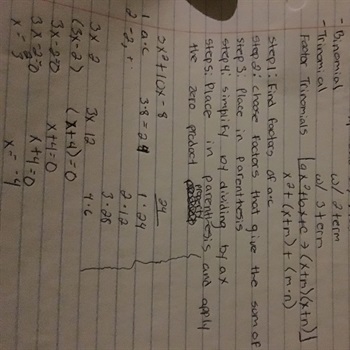 - Binomial w/ 2 term
- Trinomial w/ 3 term
Factor Trinomials [ax²+bx+c → (x+m)(x+n)]
x² + (x+m) + (m·n)
Step 1: Find factors of a·c
Step 2: choose factors that give the sum of
Step 3: Place in Parenthesis
Step 4: simplify by dividing by ax
Step 5: Place in parenthesis and apply
the zero product property
3x² + 10x - 8
1 a·c 3·8 = 24
2 -2,
24
1·24
2·12
3·28
4·6
3x 2 3x 12
(3x - 2) (x+4) = 0
3x - 2 = 0 x + 4 = 0
3x - 2 = 0 x + 4 = 0
x = 2/3 x = -4